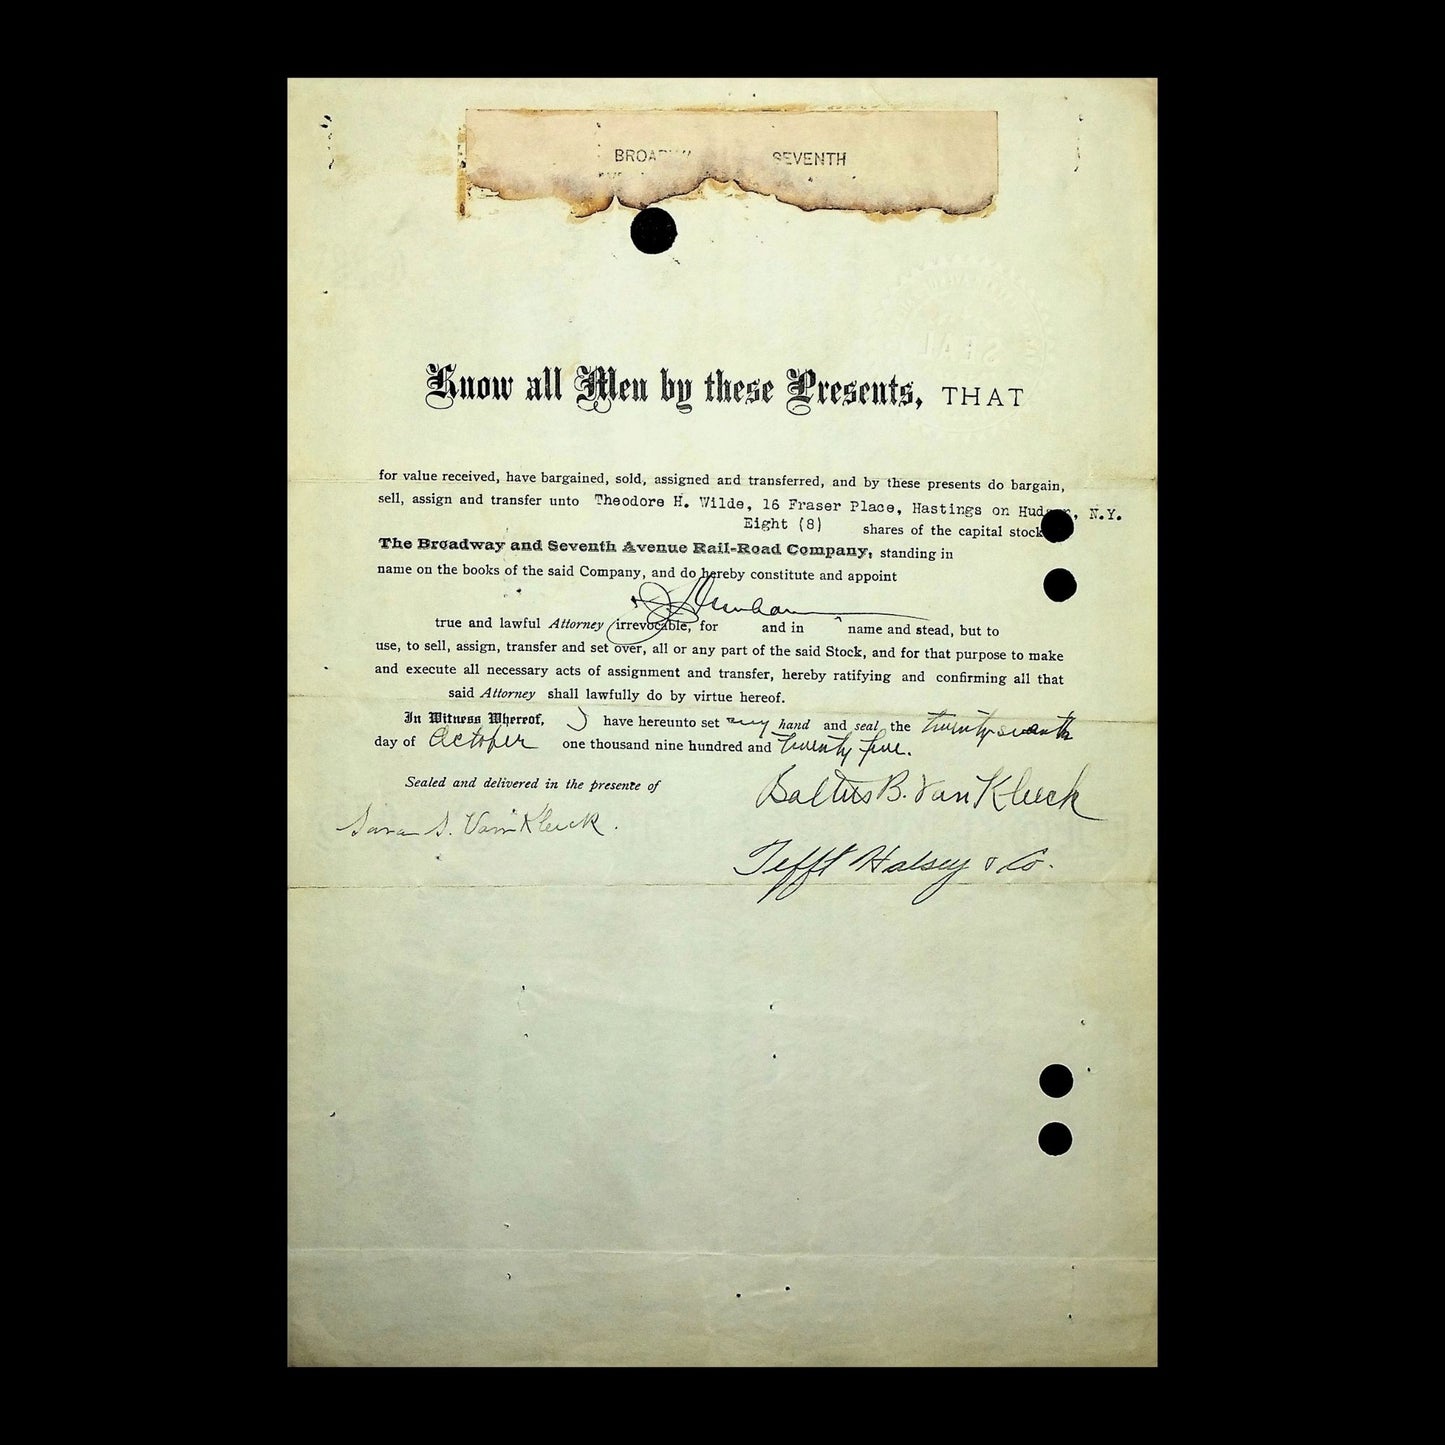 BROADW SEVENTH
SEAL
Know all Men by these Presents, THAT
for value received, have bargained, sold, assigned and transferred, and by these presents do bargain,
sell, assign and transfer unto Theodore H. Wilde, 16 Fraser Place, Hastings on Hudson, N.Y.
Eight (8) shares of the capital stock
The Broadway and Seventh Avenue Rail-Road Company, standing in
name on the books of the said Company, and do hereby constitute and appoint
true and lawful Attorney irrevocable, for and in name and stead, but to
use, to sell, assign, transfer and set over, all or any part of the said Stock, and for that purpose to make
and execute all necessary acts of assignment and transfer, hereby ratifying and confirming all that
said Attorney shall lawfully do by virtue hereof.
In Witness Whereof, I have hereunto set my hand and seal the twenty seventh
day of October one thousand nine hundred and twenty five.
Sealed and delivered in the presence of
Baltus B. Van Kleeck
Sara S. Van Kleeck.
Tefft Halsey & Co.